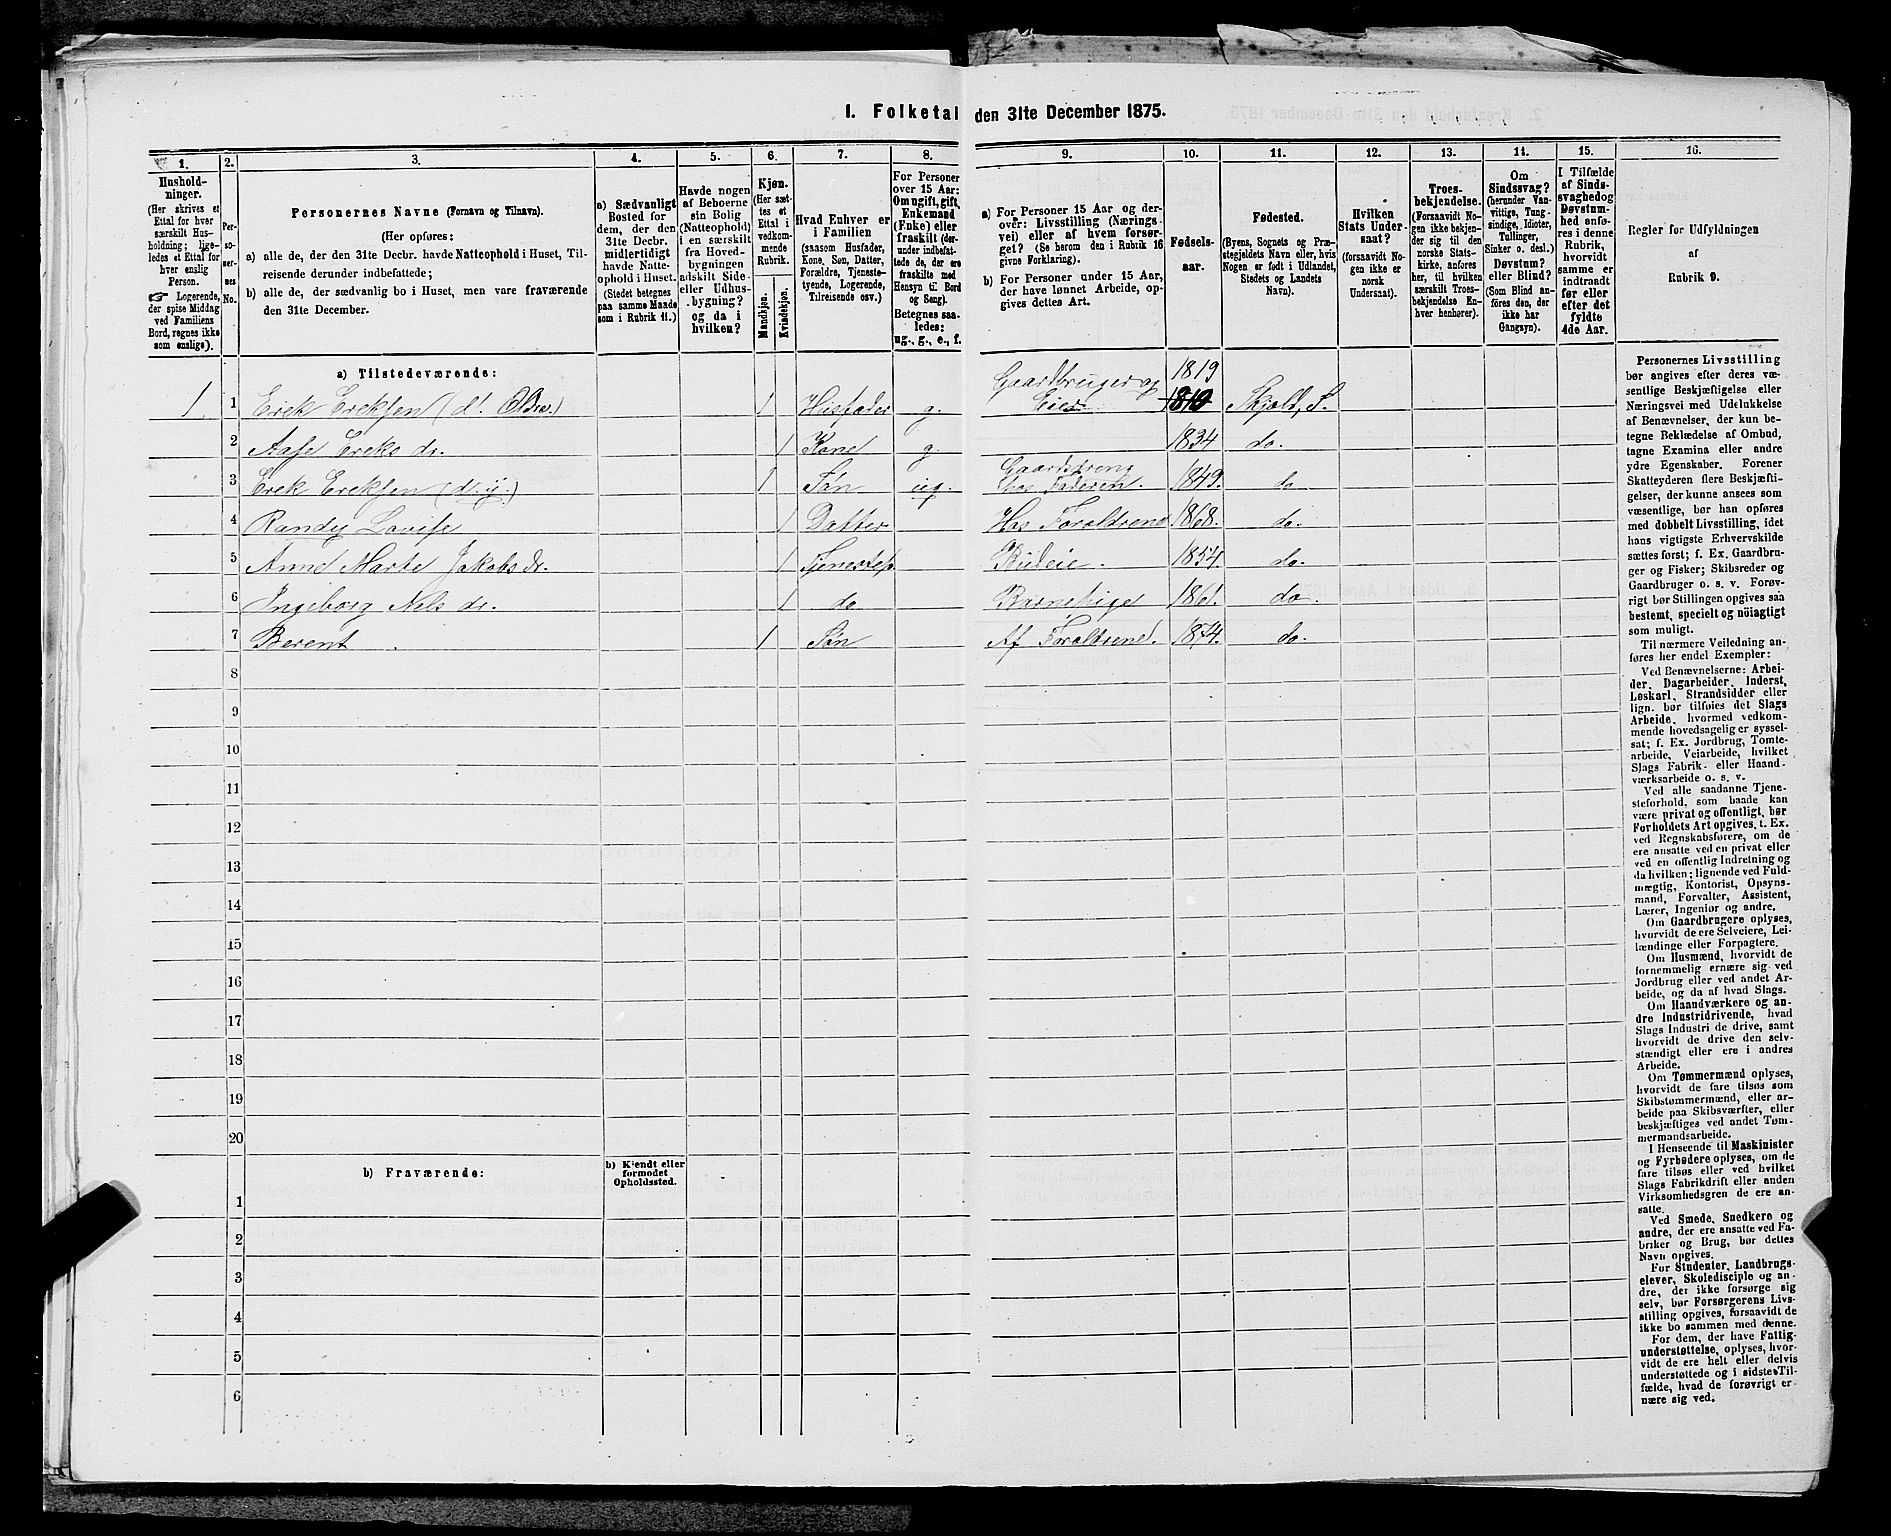 1. Folketal den 31te December 1875.
1.
Hushold-
ninger.
(Her skrives et
Ettal for hver
særskilt Hus-
holdning; lige-
ledes et Ettal for
hver enslig
Person.
☞ Logerende,
der spise Middag
ved Familiens
Bord, regnes ikke
som enslige).
2.
Per-
so-
ner-
nes
No.
3.
Personernes Navne (Fornavn og Tilnavn).
(Her opføres:
a) alle de, der den 31te Decbr. havde Natteophold i Huset, Til-
reisende derunder indbefattede;
b) alle de, der sædvanlig bo i Huset, men vare fraværende
den 31te December.
4.
a) Sædvanligt
Bosted for
dem, der den
31te Decbr.
midlertidigt
havde Natte-
ophold i Huset
(Stedet betegnes
paa samme Maade
som i Rubrik 11.)
5.
Havde nogen
af Beboerne
sin Bolig
(Natteophold)
i en særskilt
fra Hoved-
bygningen
adskilt Side-
eller Udhus-
bygning?
og da i
hvilken?
6.
Kjøn.
(Her sæt-
tes et
Ettal i
vedkom-
mende
Rubrik.
Mandkjøn.
Kvindekjøn.
7.
Hvad Enhver er
i Familien
(saasom Husfader,
Kone, Søn, Datter,
Forældre, Tjeneste-
tyende, Logerende,
Tilreisende osv.)
8.
For Personer
over 15 Aar:
Om ugift, gift,
Enkemand
(Enke) eller
fraskilt (der-
under indbefat-
tede de, der ere
fraskilte med
Hensyn til Bord
og Seng).
Betegnes saa-
ledes:
ug., g., e., f.
9.
a) For Personer 15 Aar og der-
over: Livsstilling (Nærings-
vei) eller af hvem forsør-
get? (Se herom den i Rubrik 16
givne Forklaring).
b) For Personer under 15 Aar,
der have lønnet Arbeide, op-
gives dettes Art.
10.
Fødsels-
aar.
11.
Fødested.
(Byens, Sognets og Præ-
stegjeldets Navn eller, hvis
Nogen er født i Udlandet,
Stedets og Landets
Navn).
12.
Hvilken
Stats Under-
saat?
(forsaavidt No-
gen ikke er
norsk
Undersaat).
13.
Troes-
bekjendelse.
(Forsaavidt No-
gen ikke bekjen-
der sig til den
norske Stats-
kirke, anføres
her, til hvilken
særskilt Troes-
bekjendelse En-
hver henhører).
14.
Om
Sindssvag?
(herunder Van-
vittige, Tung-
sindige, Idioter,
Tullinger,
Sinker o. desl.)
Døvstum?
eller Blind?
(Som Blind an-
føres den, der
ikke har
Gangsyn).
15.
I Tilfælde
af Sinds-
svaghed og
Døvstum-
hed anfø-
res i denne
Rubrik,
hvorvidt
samme er
indtraadt
før eller
efter det
fyldte
4de Aar.
16.
Regler for Udfyldningen
af
Rubrik 9.
a) Tilstedeværende:
1 1 Erek Ereksen (d. 1 Husfader g. Gaardbruger og Eier 1819 1819 Skjold, S.
2 Aase Ereks dr. 1 Kone g. 1834 do.
3 Erek Ereksen (d. y.) 1 Søn ug. Gaardsdreng hos Faderen. 1849. do
4 Randy Lovise 1 Datter Hos Forældrene 1868. do.
5 Anne Marte Jakobs dr. 1 Tjenestep. Budeie. 1854. do.
6 Ingeborg Nels dr. 1 do Barnepige 1861. do.
7 Berent 1 Søn Af Forældrene. 1874. do.
8
9
10
11
12
13
14
15
16
17
18
19
20
b) Fraværende:
b) Kjendt eller
formodet
Opholdssted.
1
2
3
4
5
6
Personernes Livsstilling
bør angives efter deres væ-
sentlige Beskjæftigelse eller
Næringsvei med Udelukkelse
af Benævnelser, der kun be-
tegne Beklædelse af Ombud,
tagne Examina eller andre
ydre Egenskaber. Forener
Skatteyderen flere Beskjæfti-
gelser, der kunne ansees som
væsentlige, bør han opføres
med dobbelt Livsstilling, idet
hans vigtigste Erhvervskilde
sættes først; f. Ex. Gaardbru-
ger og Fisker; Skibsreder og
Gaardbruger o. s. v. Forøv-
rigt bør Stillingen opgives saa
bestemt, specielt og nøiagtigt
som muligt.
Til nærmere Veiledning an-
føres her endel Exempler:
Ved Benævnelserne: Arbei-
der, Dagarbeider, Inderst,
Løskarl, Strandsidder eller
lign. bør tilføies det Slags
Arbeide, hvormed vedkom-
mende hovedsagelig er syssel-
sat; f. Ex. Jordbrug, Tomte-
arbeide, Veiarbeide, hvilket
Slags Fabrik- eller Haand-
værksarbeide o. s. v.
Ved alle saadanne Tjene-
steforhold, som baade kan
være privat og offentligt, bør
Forholdets Art opgives, t. Ex.
ved Regnskabsførere, om de
ere ansatte ved en privat eller
ved en offentlig Indretning og
da hvilken; lignende ved Fuld-
mægtig, Kontorist, Opsyns-
mand, Forvalter, Assistent,
Lærer, Ingeniør og andre.
Om Gaardbrugere oplyses,
hvorvidt de ere Selveiere, Lei-
lændinge eller Forpagtere.
Om Husmænd, hvorvidt de
fornemmelig ernære sig ved
Jordbrug eller ved andet Ar-
beide, og da af hvad Slags.
Om Haandværkere og an-
dre Industridrivende, hvad
Slags Industri de drive, samt
hvorvidt de drive den selv-
stændigt eller ere i andres
Arbeide.
Om Tømmermænd oplyses,
hvorvidt de fare tilsøs som
Skibstømmermænd, eller ar-
beide paa Skibsværfter, eller
beskjæftiges ved andet Tøm-
mermandsarbeide.
I Henseende til Maskinister
og Fyrbødere oplyses, om de
fare tilsøs eller ved hvilket
Slags Fabrikdrift eller anden
Virksomhedsgren de ere an-
satte.
Ved Smede, Snedkere og
andre, der ere ansatte ved Fa-
briker og Brug, bør dettes
Navn opgives.
For Studenter, Landbrugs-
elever, Skoledisciple og an-
dre, der ikke forsørge sig
selv, bør Forsørgerens Livs-
stilling opgives, forsaavidt de
ikke bo sammen med denne.
For dem, der have Fattig-
understøttelse, oplyses, hvor-
vidt de ere helt eller delvis
understøttede og i sidste Til-
fælde, hvad de forøvrigt er-
nære sig ved.